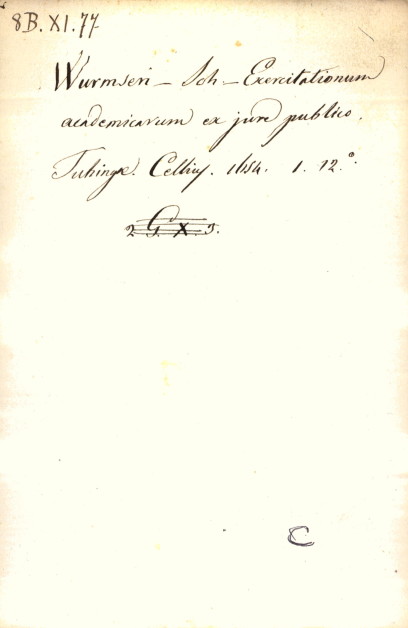 8B.XI.77
Wurmseri – Joh – Exercitationum
academicarum ex jure publico.
Tubingæ. Cellius. 1654. 1. 12.°
2 G. X. 3.
C